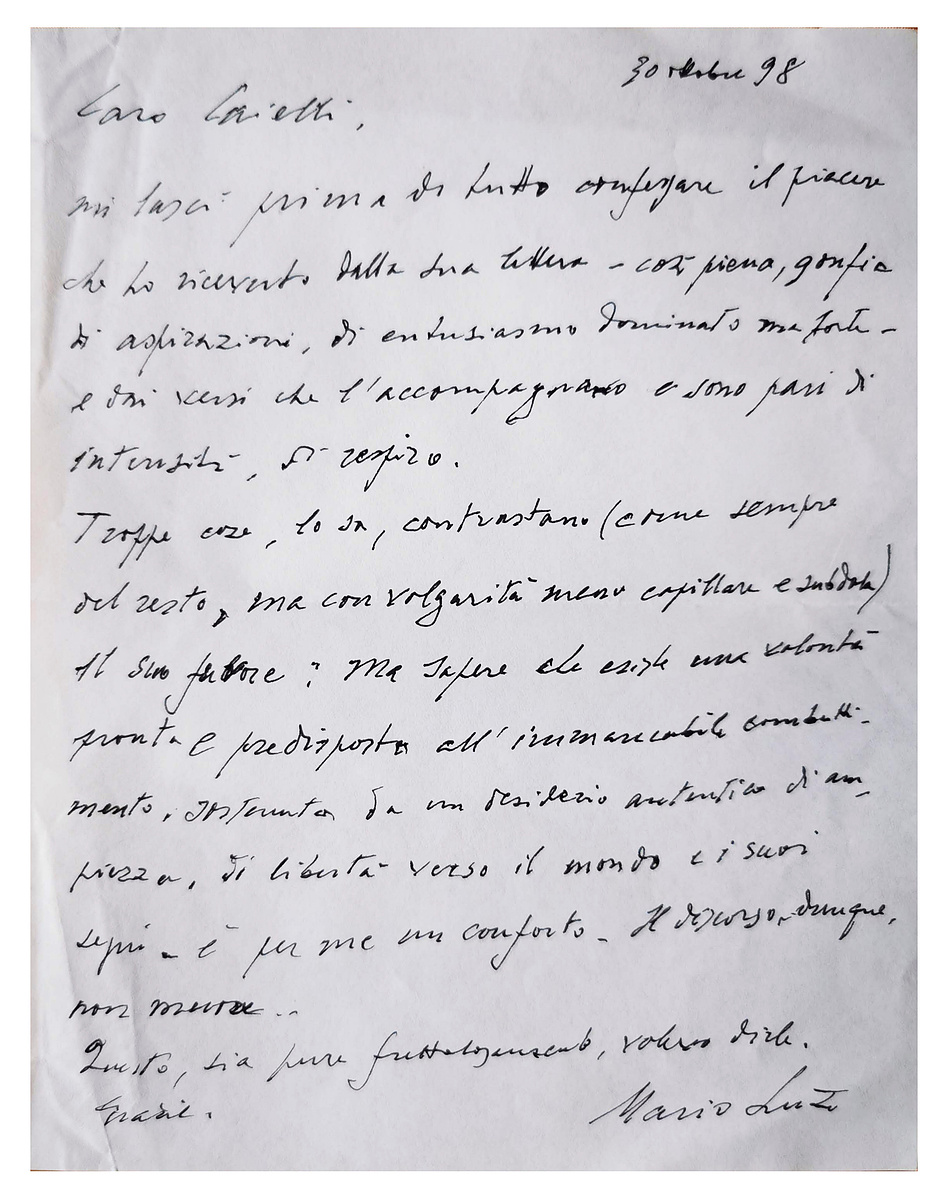 30 ottobre 98
Caro Caielli,
mi lasci prima di tutto confessare il piacere
che ho ricevuto dalla sua lettera – così piena, gonfia
di aspirazioni, di entusiasmo dominato ma forte –
e dai versi che l'accompagnano e sono pari di
intensità, di respiro.
Troppe cose, lo sa, contrastano (come sempre
del resto, ma con volgarità meno capillare e subdola)
il suo fervore? Ma sapere che esiste una volontà
pronta e predisposta all'immancabile combatti-
mento, sostenuta da un desiderio autentico di am-
piezza, di libertà verso il mondo e i suoi
segni – è per me un conforto. Il discorso, dunque,
non muore..
Questo, sia pure frettolosamente, volevo dirle.
Grazie.
Mario Luzi